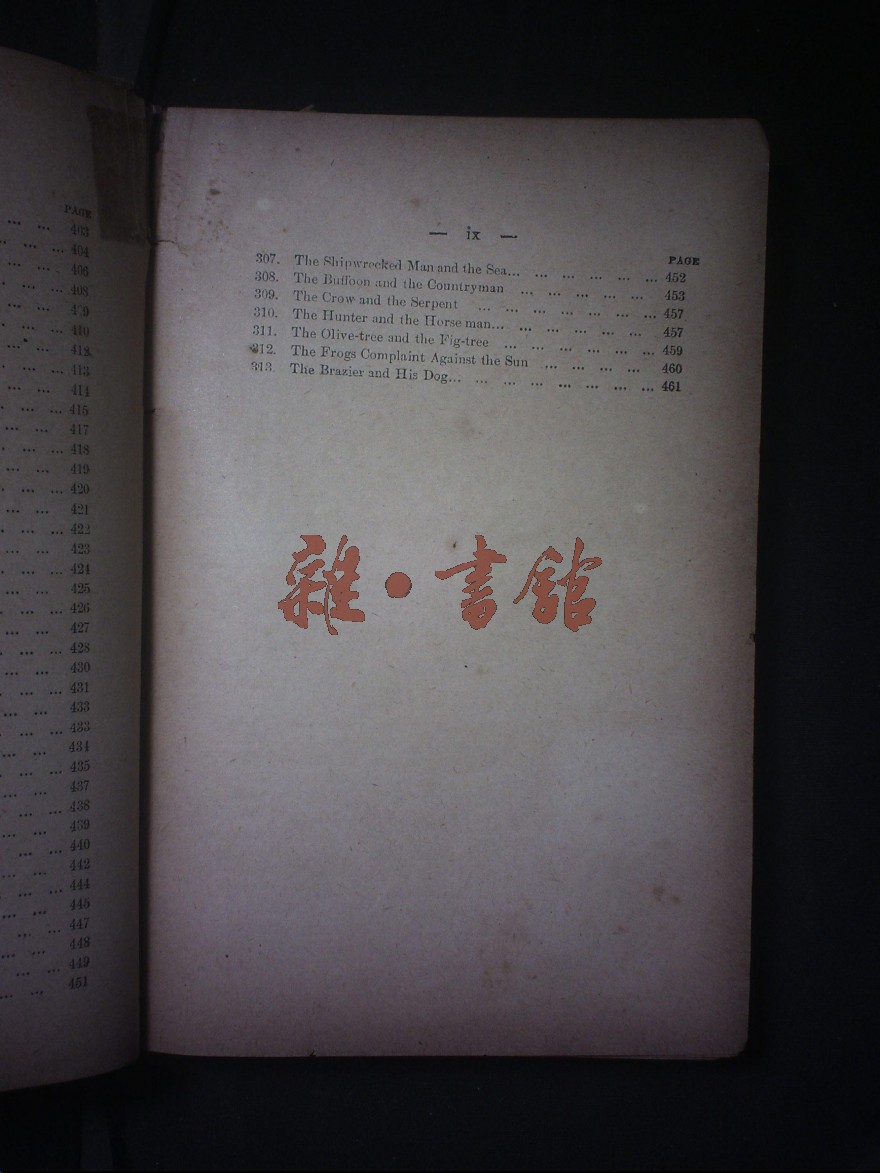 PAGE
... ... 403
... ... 404
... ... 406
... ... 408
... ... 409
... ... 410
... ... 412
... ... 413
... ... 414
... ... 415
... ... 417
... ... 418
... ... 419
... ... 420
... ... 421
... ... 422
... ... 423
... ... 424
... ... 425
... ... 426
... ... 427
... ... 428
... ... 430
... ... 431
... ... 433
... ... 433
... ... 434
... ... 435
... ... 437
... ... 438
... ... 439
... ... 440
... ... 442
... ... 444
... ... 445
... ... 447
... ... 448
... ... 449
... ... 451
— ix —
PAGE
307. The Shipwrecked Man and the Sea... ... ... ... ... ... 452
308. The Buffoon and the Countryman ... ... ... ... ... 453
309. The Crow and the Serpent ... ... ... ... ... ... ... 457
310. The Hunter and the Horse man... ... ... ... ... ... 457
311. The Olive-tree and the Fig-tree ... ... ... ... ... ... 459
312. The Frogs Complaint Against the Sun ... ... ... ... 460
313. The Brazier and His Dog... ... ... ... ... ... ... ... 461
雜·書館